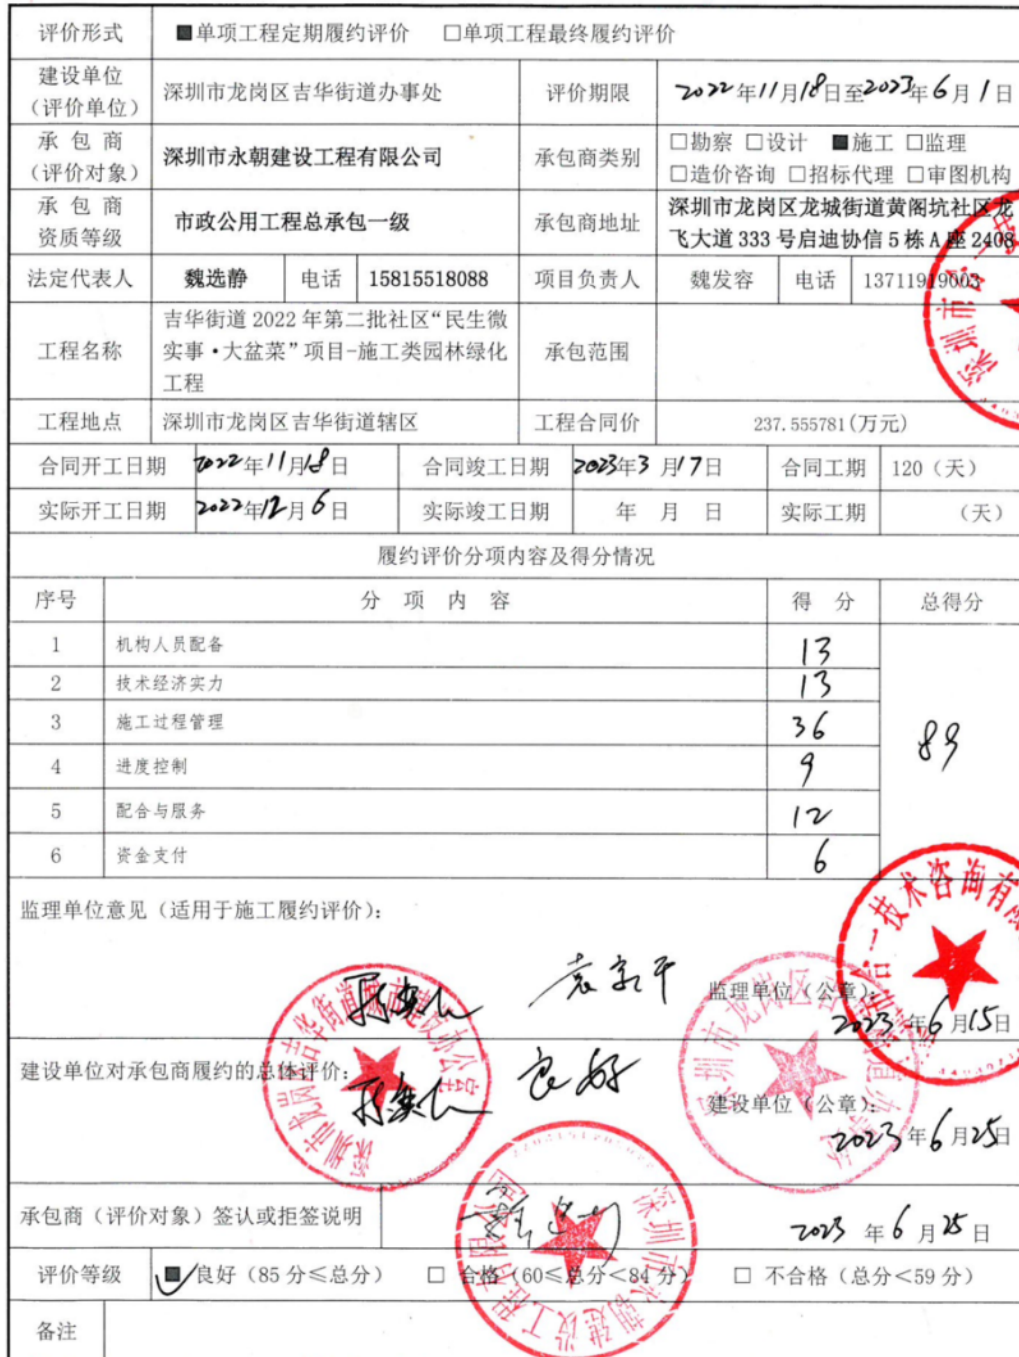 评价形式 ■单项工程定期履约评价 □单项工程最终履约评价
建设单位
（评价单位） 深圳市龙岗区吉华街道办事处 评价期限 2022年11月18日至2023年6月1日
承 包 商
（评价对象） 深圳市永朝建设工程有限公司 承包商类别 □勘察 □设计 ■施工 □监理
□造价咨询 □招标代理 □审图机构
承 包 商
资质等级 市政公用工程总承包一级 承包商地址 深圳市龙岗区龙城街道黄阁坑社区龙
飞大道 333 号启迪协信 5 栋 A 座 2408
法定代表人 魏选静 电话 15815518088 项目负责人 魏发容 电话 13711919003
工程名称 吉华街道 2022 年第二批社区“民生微
实事·大盆菜”项目-施工类园林绿化
工程 承包范围
工程地点 深圳市龙岗区吉华街道辖区 工程合同价 237.555781(万元)
合同开工日期 2022年11月18日 合同竣工日期 2023年3月17日 合同工期 120（天）
实际开工日期 2022年12月6日 实际竣工日期 年 月 日 实际工期 （天）
履约评价分项内容及得分情况
序号 分 项 内 容 得 分 总得分
1 机构人员配备 13
2 技术经济实力 13
3 施工过程管理 36
89
4 进度控制 9
5 配合与服务 12
6 资金支付 6
监理单位意见（适用于施工履约评价）：
监理单位（公章）：
2023年6月15日
建设单位对承包商履约的总体评价：
良好
建设单位（公章）：
2023年6月25日
承包商（评价对象）签认或拒签说明 2023 年 6 月 25 日
评价等级 ■良好（85 分≤总分） □ 合格（60≤总分＜84 分） □ 不合格（总分＜59 分）
备注